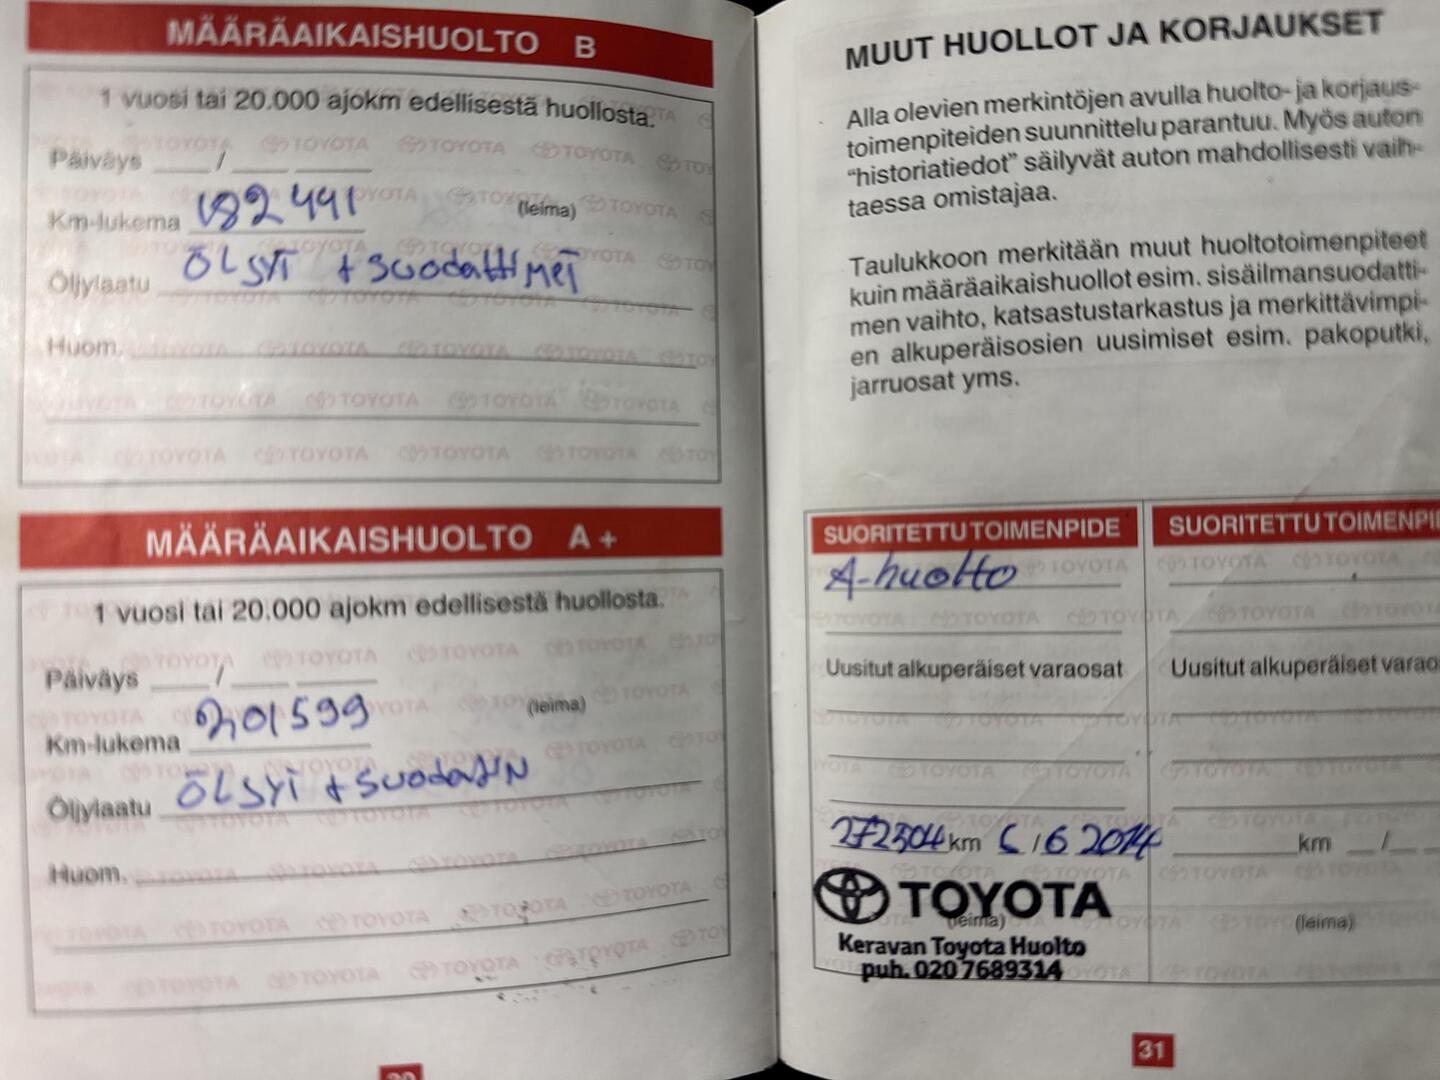 MÄÄRÄAIKAISHUOLTO B
1 vuosi tai 20.000 ajokm edellisestä huollosta.
Päiväys ____/____ ______
Km-lukema 182 441 (leima)
Öljylaatu ÖLSYT + SUODATTIMET
Huom.
MÄÄRÄAIKAISHUOLTO A +
1 vuosi tai 20.000 ajokm edellisestä huollosta.
Päiväys ____/____ ______
Km-lukema 201599 (leima)
Öljylaatu ÖLSYT + SUODATIN
Huom.
MUUT HUOLLOT JA KORJAUKSET
Alla olevien merkintöjen avulla huolto- ja korjaus-
toimenpiteiden suunnittelu parantuu. Myös auton
"historiatiedot" säilyvät auton mahdollisesti vaih-
taessa omistajaa.
Taulukkoon merkitään muut huoltotoimenpiteet
kuin määräaikaishuollot esim. sisäilmansuodatti-
men vaihto, katsastustarkastus ja merkittävimpi-
en alkuperäisosien uusimiset esim. pakoputki,
jarruosat yms.
SUORITETTU TOIMENPIDE
A-huolto
Uusitut alkuperäiset varaosat
272504 km 5/6 2014
TOYOTA
(leima)
Keravan Toyota Huolto
puh. 020 7689314
SUORITETTU TOIMENPI
Uusitut alkuperäiset varao
km __/__
(leima)
31